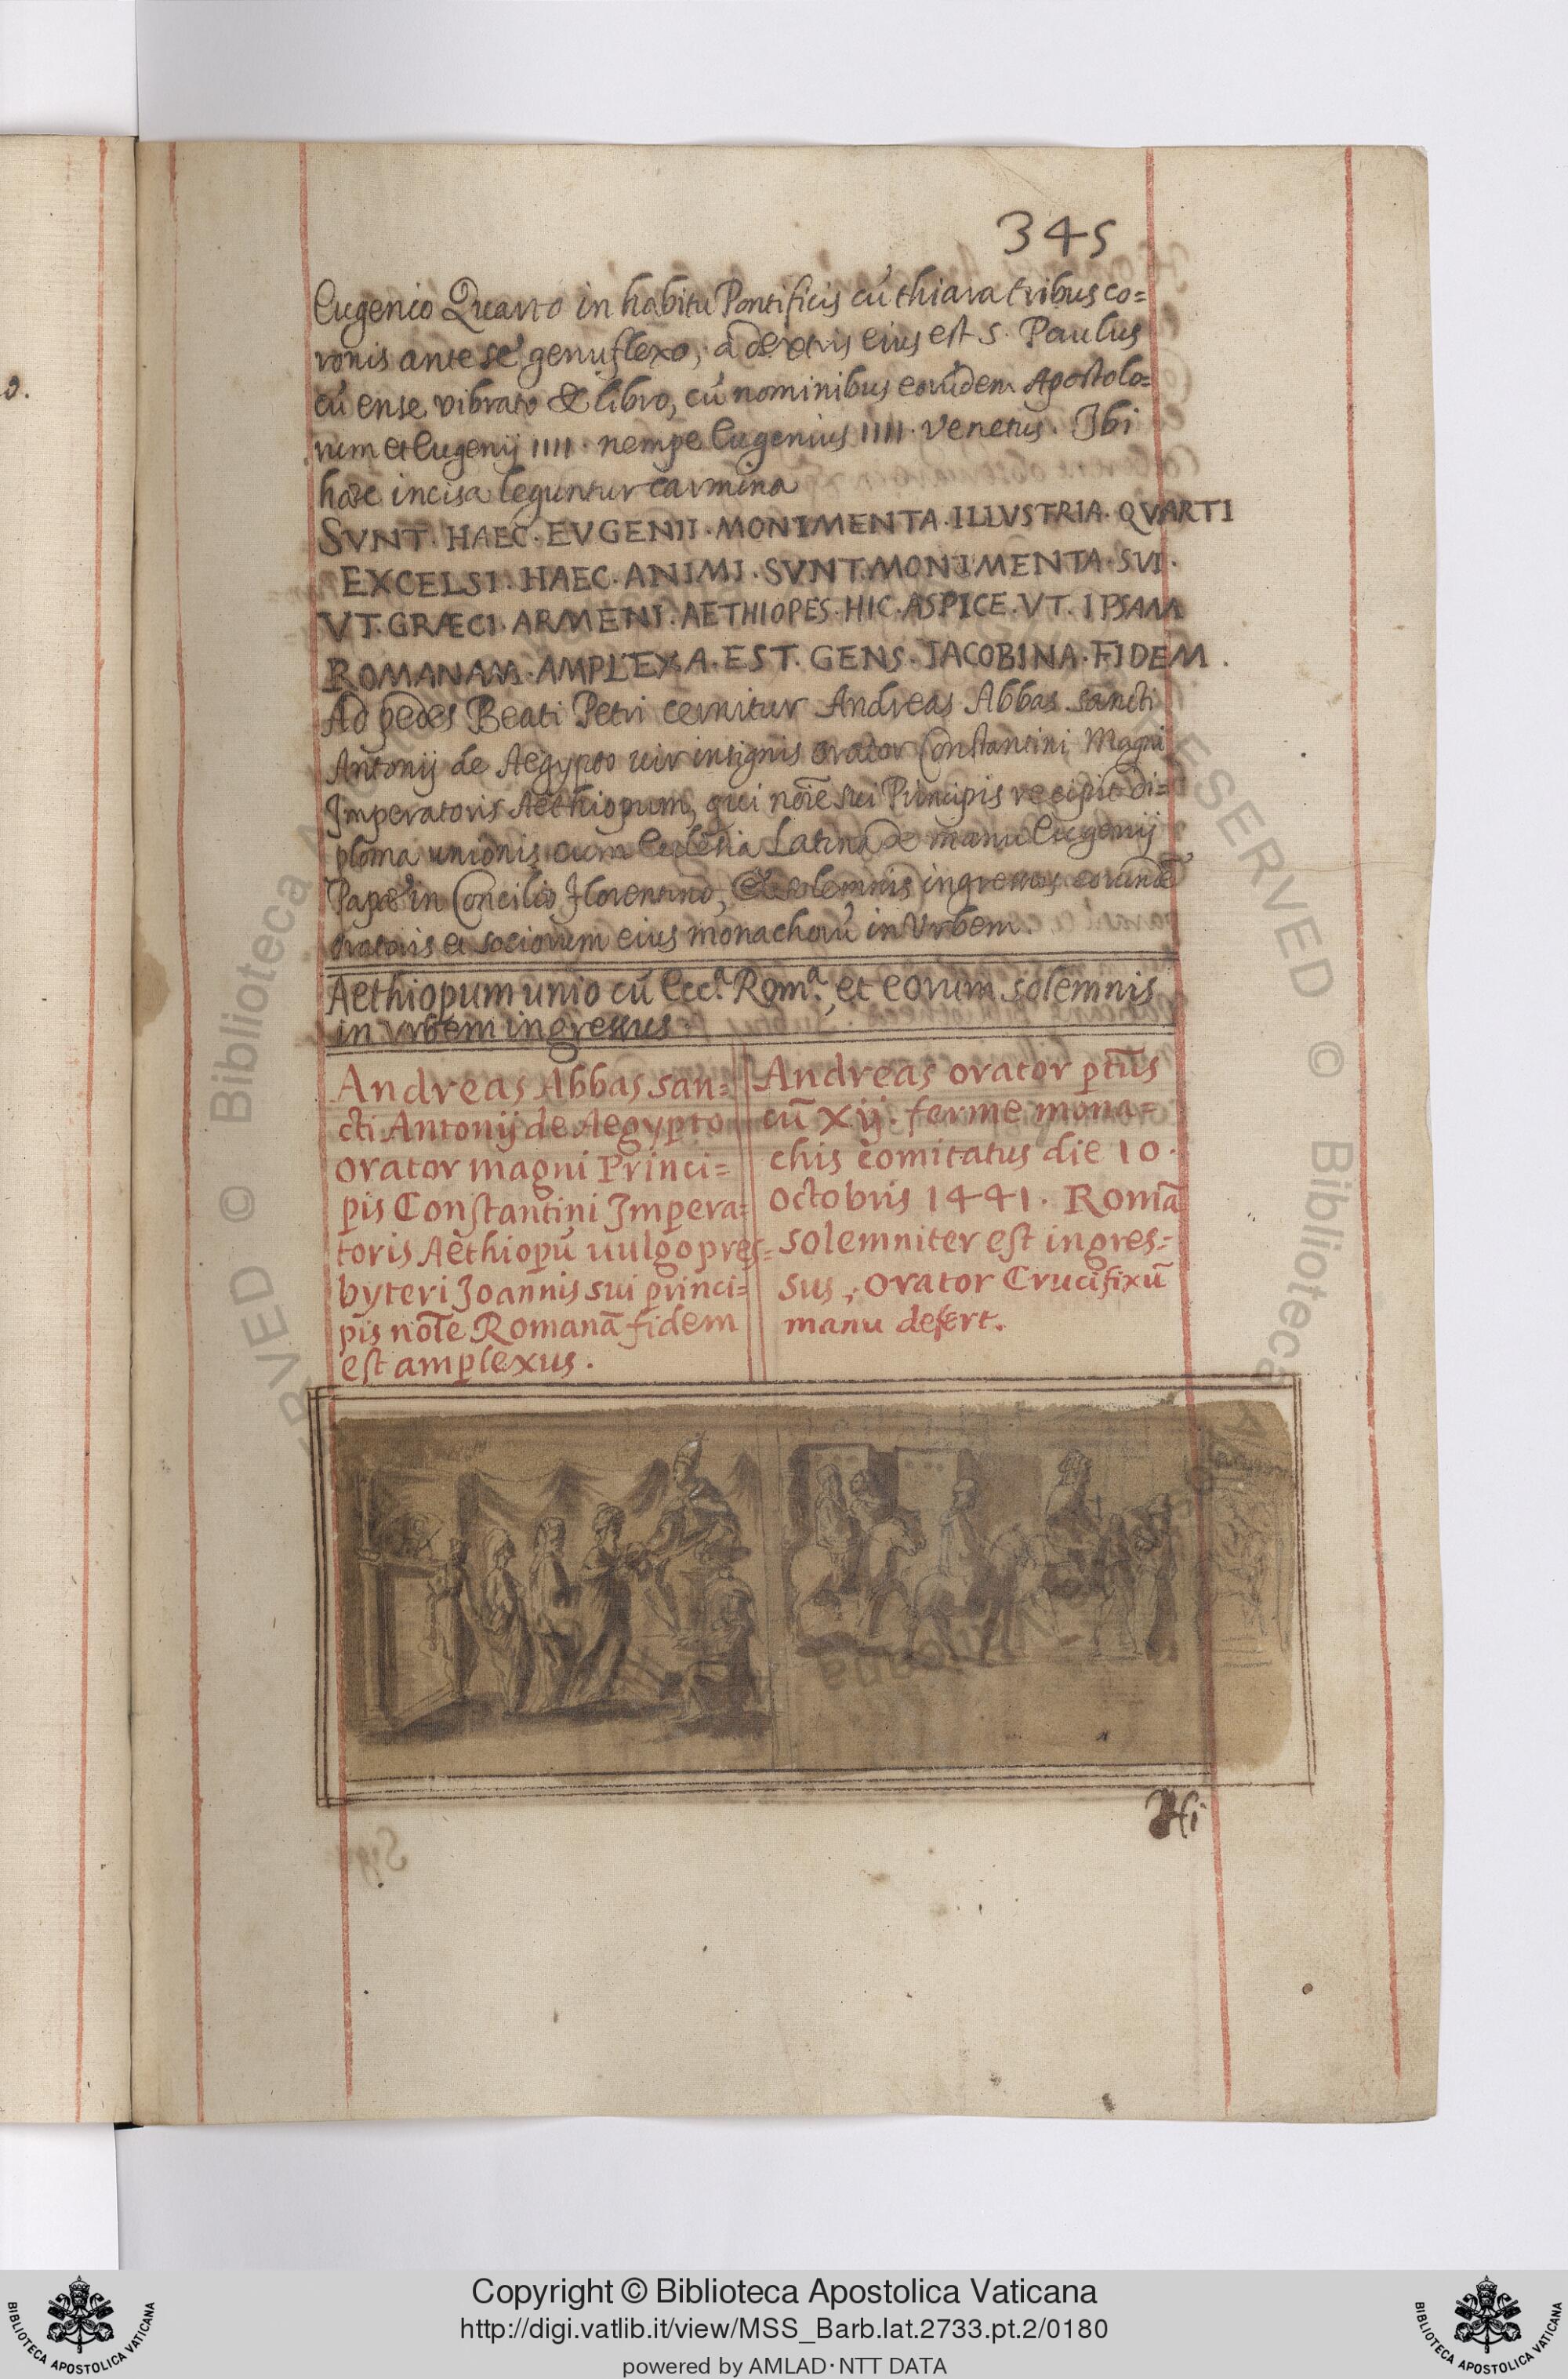 345
Eugenio Quarto in habitu Pontificis cū thiara tribus co=
ronis ante se genuflexo, a dextris eius est S. Paulus
cū ense vibrato & libro, cū nominibus eorūdem Apostolo=
rum et Eugenij IIII. nempe Eugenius IIII. Venetus. Ibi
haec incisa leguntur carmina
SVNT. HAEC. EVGENII. MONIMENTA. ILLVSTRIA. QVARTI
EXCELSI. HAEC. ANIMI. SVNT. MONIMENTA. SVI.
VT. GRÆCI. ARMENI. AETHIOPES. HIC. ASPICE. VT. IPSAM
ROMANAM. AMPLEXA. EST. GENS. JACOBINA. FIDEM.
Ad pedes Beati Petri cernitur Andreas Abbas sancti
Antonij de Aegypto vir insignis orator Constantini Magni
Imperatoris Aethiopum, qui noīe sui Principis recipit di=
ploma unionis cum Ecclesia Latina de manu Eugenij
Papae in Concilio Florentino, & solemnis ingressus eorundē
oratoris et sociorum eius monachorū in Urbem.
Aethiopum unio cū Ecc.ª Rom.ª, et eorum solemnis
in urbem ingressus
Andreas Abbas san=
cti Antonij de Aegypto
orator magni Princi=
pis Constantini Impera=
toris Aethiopū uulgo pres=
byteri Joannis sui princi=
pis noīe Romanā fidem
est amplexus.
Andreas orator ptūs
cū xij. ferme mona=
chis comitatus die 10.
octobris 1441. Romā
solemniter est ingres=
sus, orator Crucifixū
manu defert.
Hi
Copyright © Biblioteca Apostolica Vaticana
http://digi.vatlib.it/view/MSS_Barb.lat.2733.pt.2/0180
powered by AMLAD·NTT DATA
BIBLIOTECA APOSTOLICA VATICANA
BIBLIOTECA APOSTOLICA VATICANA